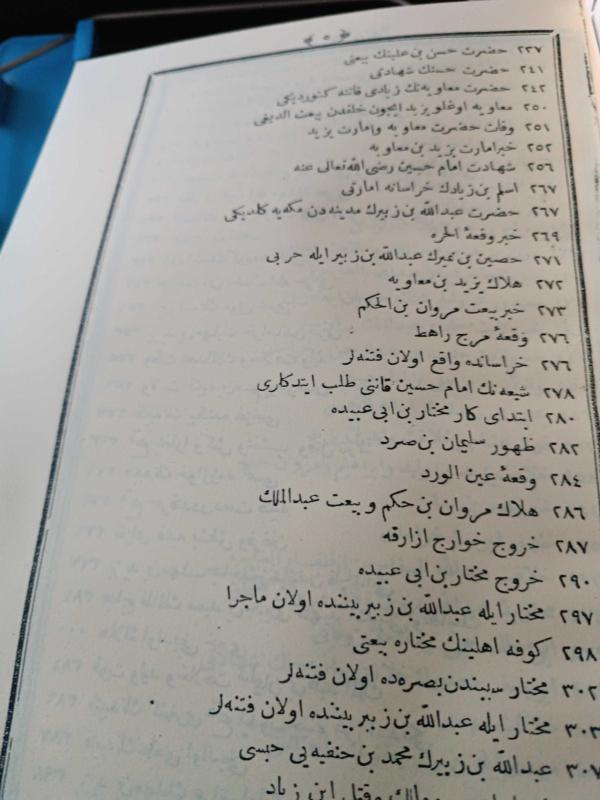 ٥
٢٣٧ حضرت حسن بن علينك بيعتى
٢٤١ حضرت حسنك شهادتى
٢٤٢ حضرت معاويه نك زيادى قاتنه كتورديكى
٢٥٠ معاويه اوغلو يزيد ايچون خلقدن بيعت الديغى
٢٥١ وفات حضرت معاويه وامارت يزيد
٢٥٢ خبر امارت يزيد بن معاويه
٢٥٦ شهادت امام حسين رضى الله تعالى عنه
٢٦٧ اسلم بن زيادك خراسانه امارتى
٢٦٧ حضرت عبدالله بن زبيرك مدينه دن مكه يه كلديكى
٢٦٩ خبر وقعهٔ الحره
٢٧١ حصين بن نميرك عبدالله بن زبير ايله حربى
٢٧٢ هلاك يزيد بن معاويه
٢٧٣ خبر بيعت مروان بن الحكم
٢٧٦ وقعهٔ مرج راهط
٢٧٦ خراسانده واقع اولان فتنه لر
٢٧٨ شيعه نك امام حسين قاننى طلب ايتدكارى
٢٨٠ ابتداى كار مختار بن ابى عبيده
٢٨٢ ظهور سليمان بن صرد
٢٨٤ وقعهٔ عين الورد
٢٨٦ هلاك مروان بن حكم و بيعت عبدالملك
٢٨٧ خروج خوارج ازارقه
٢٩٠ خروج مختار بن ابى عبيده
٢٩٧ مختار ايله عبدالله بن زبير بيننده اولان ماجرا
٢٩٨ كوفه اهلينك مختاره بيعتى
٣٠٢ مختار سببندن بصره ده اولان فتنه لر
٣٠٣ مختار ايله عبدالله بن زبير بيننده اولان فتنه لر
٣٠٧ عبدالله بن زبيرك محمد بن حنفيه يى حبسى
وقتل ابن زياد